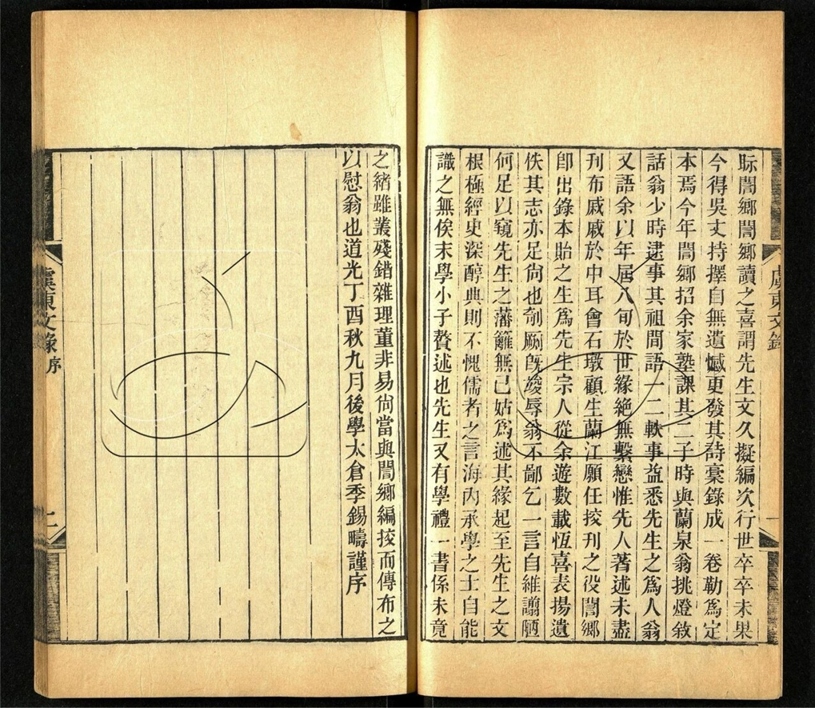 眎誾鄉誾鄉讀之喜謂先生文久擬編次行世卒卒未果
今得吳丈持擇自無遺憾更發其詩稾錄成一卷勒爲定
本焉今年誾鄉招余家塾課其二子時與蘭泉翁挑燈敘
話翁少時逮事其祖間語一二軼事益悉先生之爲人翁
又語余以年屆八旬於世緣絶無繫戀惟先人著述未盡
刋布戚戚於中耳會石墩顧生蘭江願任挍刋之役誾鄉
卽出錄本貽之生爲先生宗人從余遊數載恆喜表揚遺
佚其志亦足尙也剞劂旣竣辱翁不鄙乞一言自維謭陋
何足以窺先生之藩籬無已姑爲述其緣起至先生之文
根極經史深醇典則不愧儒者之言海內承學之士自能
識之無俟末學小子贅述也先生又有學禮一書係未竟
之緒雖叢殘錯雜理董非易尙當與誾鄉編挍而傳布之
以慰翁也道光丁酉秋九月後學太倉季錫疇謹序
虞東文錄
一
虞東文錄 序
二